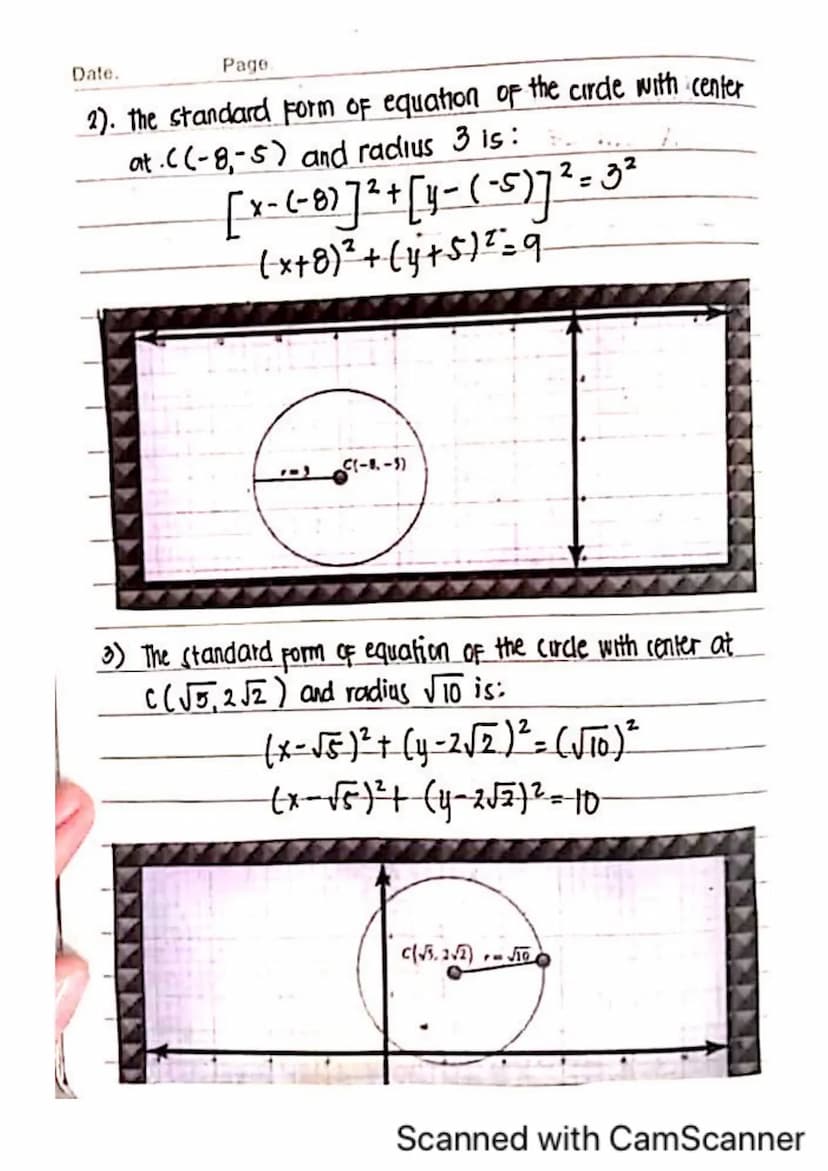 Date.
Page.
2). the standard form of equation of the circle with center
at .C(-8,-5) and radius 3 is:
[x-(-8)]²+[y-(-5)]²=3²
(x+8)²+(y+5)²=9
r=3 C(-8,-5)
3) The standard form of equation of the circle with center at
C(√5,2√2) and radius √10 is:
(x-√5)²+(y-2√2)²=(√10)²
(x-√5)²+(y-2√2)²=10
C(√5,2√2) r=√10
Scanned with CamScanner